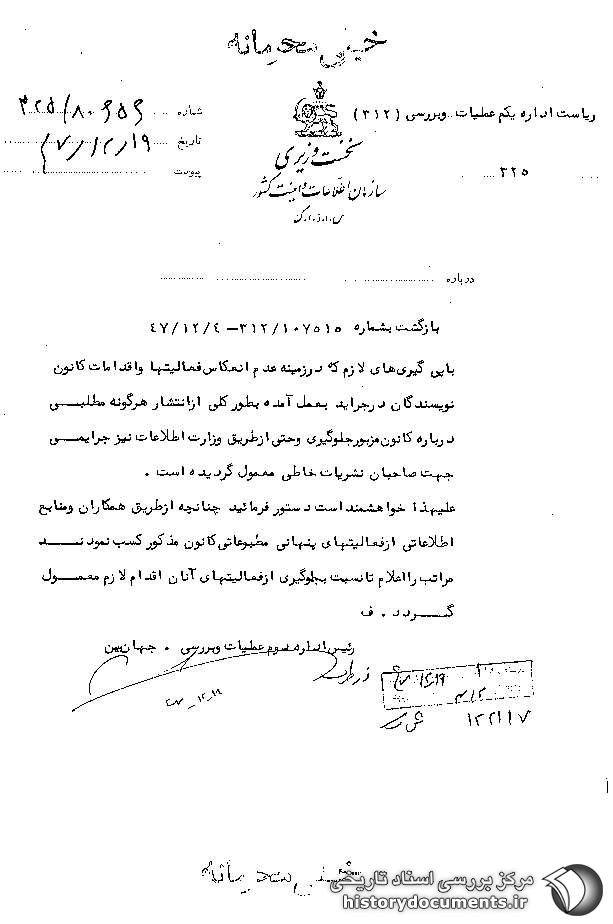 خیلی محرمانه
ریاست اداره یکم عملیات وبررسی (۳۱۲)
شماره ۳۲۵/۸۰۶۵۶
نخست وزیری
تاریخ ۴۷/۱۲/۱۹
۳۲۵
پیوست
سازمان اطلاعات و امنیت کشور
س.ا.و.ا.ک
درباره
بازگشت بشماره ۳۱۲/۱۰۷۵۱۵ – ۴۷/۱۲/۴
باپی گیریهای لازم که درزمینه عدم انعکاس فعالیتها واقدامات کانون
نویسندگان درجراید بعمل آمده بطورکلی ازانتشار هرگونه مطلبی
درباره کانون مزبورجلوگیری وحتی ازطریق وزارت اطلاعات نیز جرایمی
جهت صاحبان نشریات خاطی معمول گردیده است .
علیهذا خواهشمند است دستور فرمائید چنانچه ازطریق همکاران ومنابع
اطلاعاتی ازفعالیتهای پنهانی مطبوعاتی کانون مذکور کسب نمودنـــد
مراتب رااعلام تانسبت بجلوگیری ازفعالیتهای آنان اقدام لازم معمــول
گـــردد . ف
رئیس اداره سوم عملیات وبررسی . جهان بین
۴۷/۱۲/۱۹
۳۱۲
۴۷_۱۲_۱۹
۱۲۲۱۱۷
خیلی محرمانه
مرکز بررسی اسناد تاریخی
historydocuments.ir